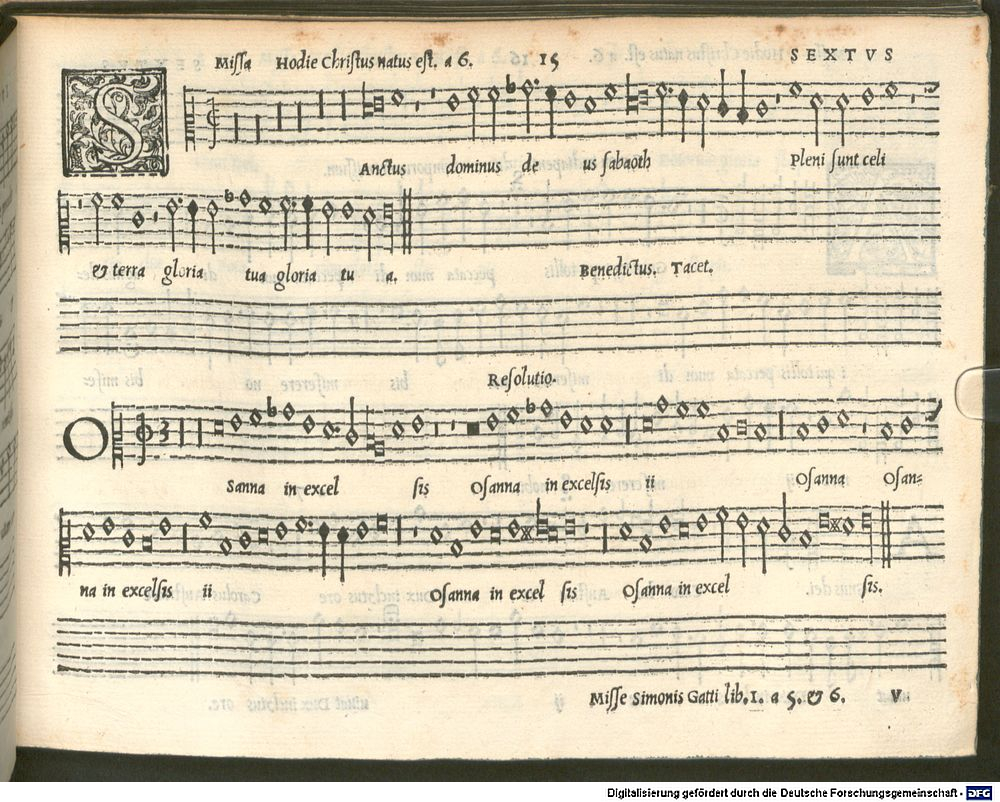 Missa Hodie Christus natus est. a 6. 15 SEXTVS
SAnctus dominus de us sabaoth Pleni sunt celi
& terra gloria tua gloria tu a. Benedictus. Tacet.
Resolutio.
OSanna in excel sis Osanna in excelsis ii Osanna Osan=
na in excelsis ii Osanna in excel sis Osanna in excel sis.
Misse Simonis Gatti lib. I. a 5. & 6. V
Digitalisierung gefördert durch die Deutsche Forschungsgemeinschaft - DFG